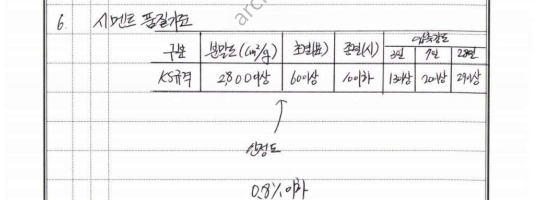 6. 시멘트 품질기준
압축강도
구분 분말도(cm²/g) 초결(분) 종결(시) 3일 7일 28일
KS규격 2,800이상 60이상 10이하 13이상 20이상 29이상
안정도
0.8% 이하